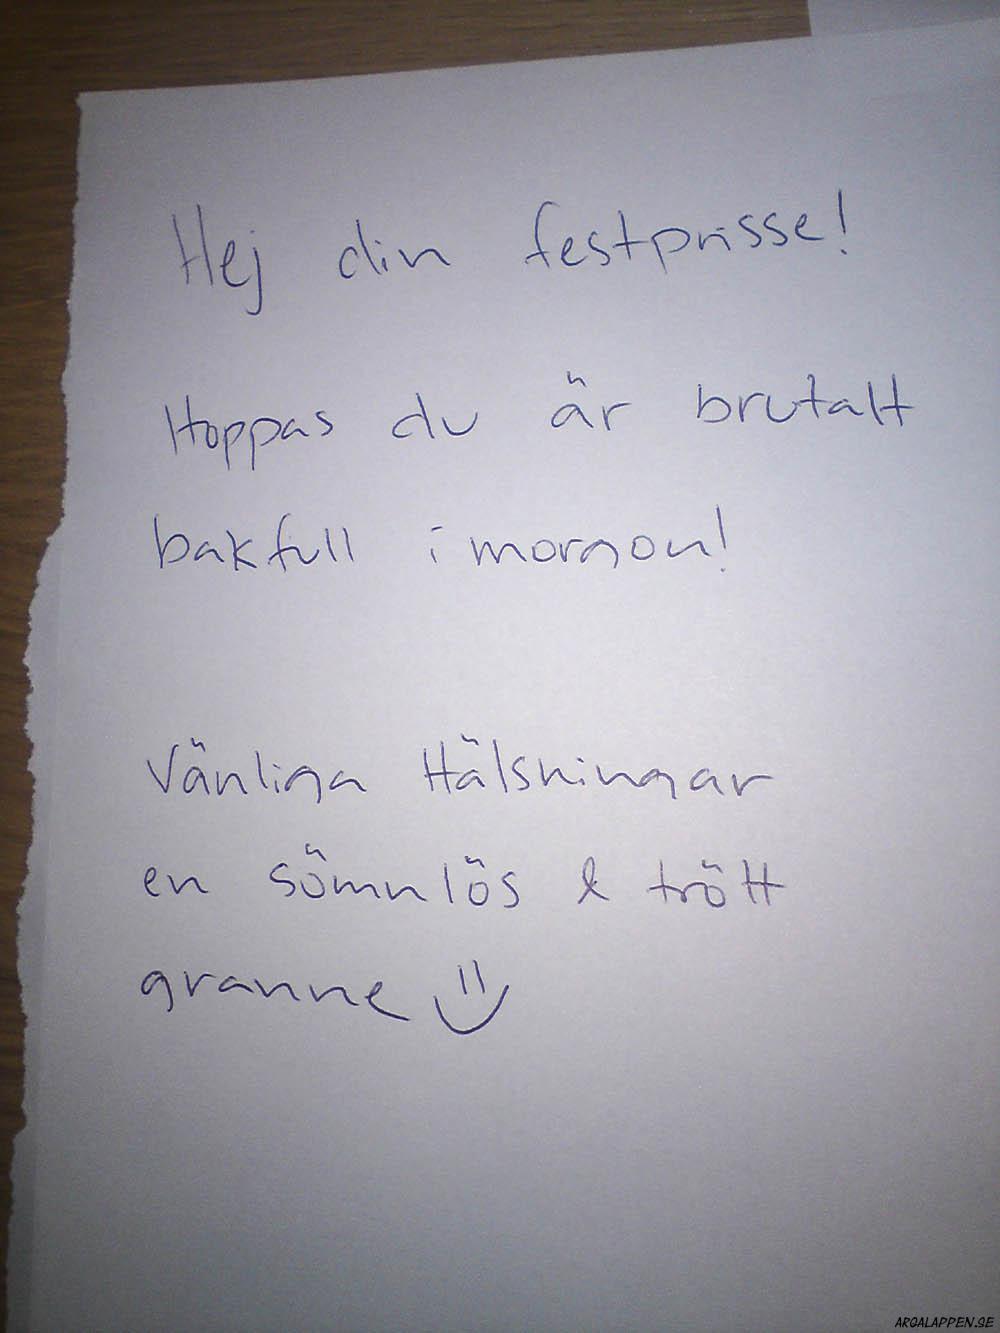 Hej din festprisse!
Hoppas du är brutalt
bakfull i morgon!
Vänliga Hälsningar
en sömnlös & trött
granne
ARGALAPPEN.SE